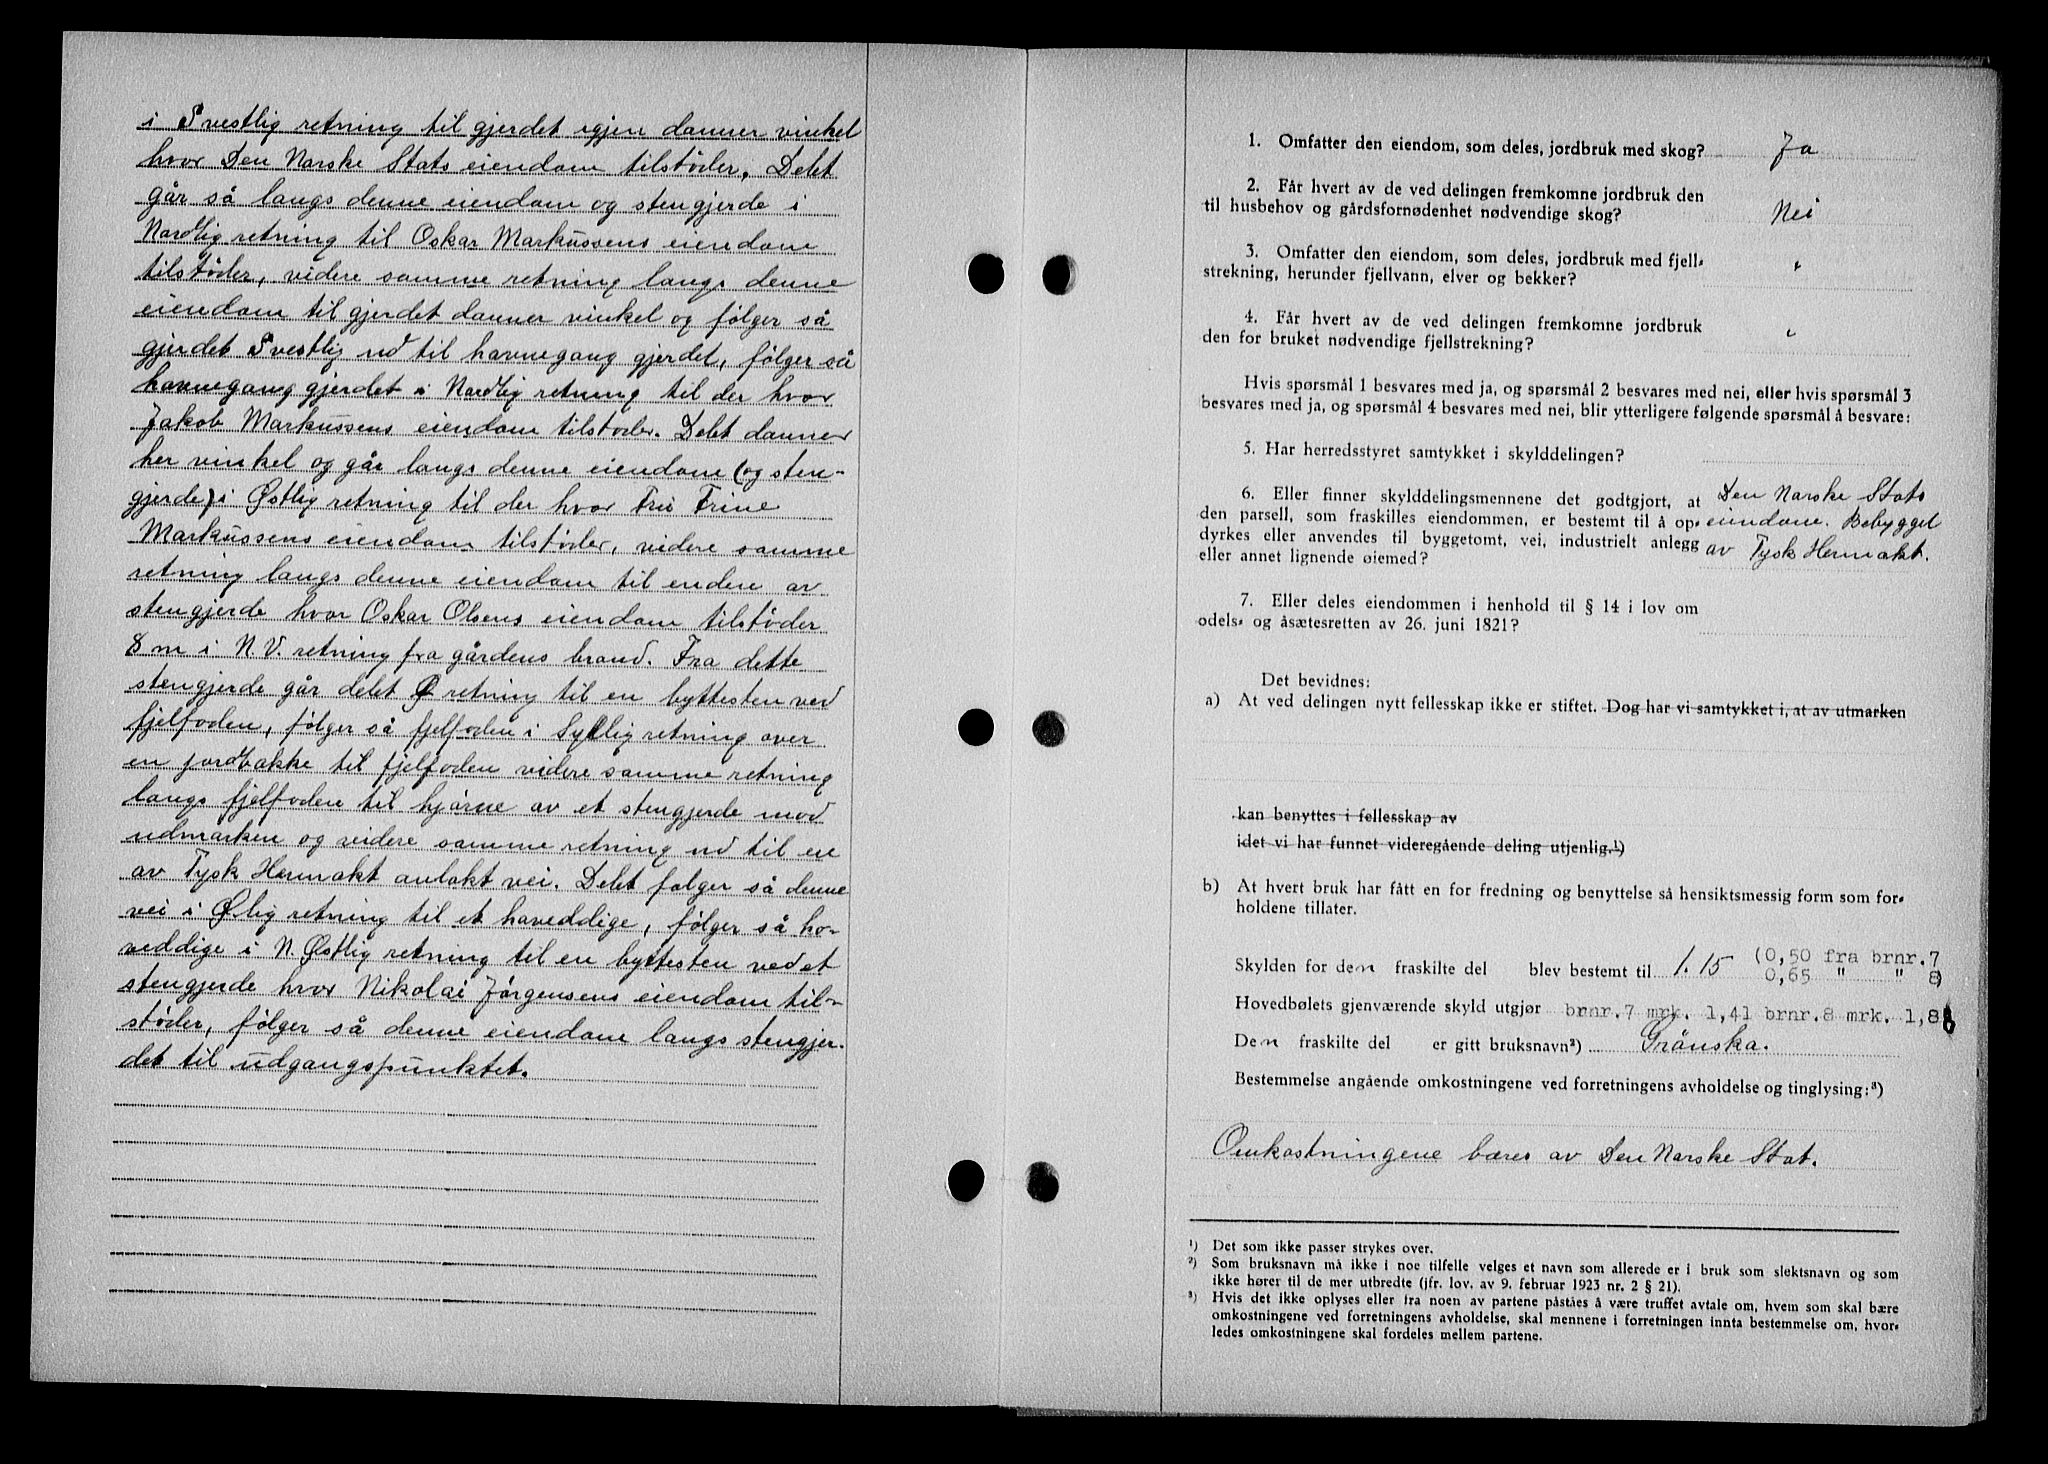 i S vestlig retning til gjerdet igjen danner vinkel
hvor Den Norske Stats eiendom tilstøder. Delet
går så langs denne eiendom og stengjerde i
Nordlig retning til Oskar Markussens eiendom
tilstøder, videre samme retning langs denne
eiendom til gjerdet danner vinkel og følger så
gjerdet S vestlig ud til havnegang gjerdet, følger så
havnegang gjerdet i Nordlig retning til der hvor
Jakob Markussens eiendom tilstøder. Delet danner
her vinkel og går langs denne eiendom (og sten-
gjerde) i Østlig retning til der hvor Fru Trine
Markussens eiendom tilstøder, videre samme
retning langs denne eiendom til enden av
stengjerde hvor Oskar Olsens eiendom tilstøder
8 m i N.V. retning fra gårdens brønd. Fra dette
stengjerde går delet Ø retning til en byttesten ved
fjelfoden, følger så fjelfoden i Sydlig retning over
en jordbakke til fjelfoden videre samme retning
langs fjelfoden til hjørne av et stengjerde mod
udmarken og videre samme retning ud til en
av Tysk Hermakt anlakt vei. Delet følger så denne
vei i Ølig retning til et hoveddige, følger så ho-
veddige i N. Østlig retning til en byttesten ved et
stengjerde hvor Nikolai Jørgensens eiendom til-
støder, følger så denne eiendom langs stengjer-
det til udgangspunktet.
1. Omfatter den eiendom, som deles, jordbruk med skog? Ja
2. Får hvert av de ved delingen fremkomne jordbruk den
til husbehov og gårdsfornødenhet nødvendige skog? Nei
3. Omfatter den eiendom, som deles, jordbruk med fjell-
strekning, herunder fjellvann, elver og bekker? "
4. Får hvert av de ved delingen fremkomne jordbruk
den for bruket nødvendige fjellstrekning? "
Hvis spørsmål 1 besvares med ja, og spørsmål 2 besvares med nei, eller hvis spørsmål 3
besvares med ja, og spørsmål 4 besvares med nei, blir ytterligere følgende spørsmål å besvare:
5. Har herredsstyret samtykket i skylddelingen?
6. Eller finner skylddelingsmennene det godtgjort, at Den Norske Stats
den parsell, som fraskilles eiendommen, er bestemt til å op- eiendom. Bebygget
dyrkes eller anvendes til byggetomt, vei, industrielt anlegg av Tysk Hermakt.
eller annet lignende øiemed?
7. Eller deles eiendommen i henhold til § 14 i lov om
odels- og åsætesretten av 26. juni 1821?
Det bevidnes:
a) At ved delingen nytt fellesskap ikke er stiftet. Dog har vi samtykket i, at av utmarken
kan benyttes i fellesskap av
idet vi har funnet videregående deling utjenlig.¹)
b) At hvert bruk har fått en for fredning og benyttelse så hensiktsmessig form som for-
holdene tillater.
Skylden for den fraskilte del blev bestemt til 1.15 (0,50 fra brnr. 7
0,65 " " 8)
Hovedbølets gjenværende skyld utgjør brnr. 7 mrk. 1,41 brnr. 8 mrk. 1,86
Den fraskilte del er gitt bruksnavn²) Grønska.
Bestemmelse angående omkostningene ved forretningens avholdelse og tinglysing:³)
Omkostningene bæres av Den Norske Stat.
¹) Det som ikke passer strykes over.
²) Som bruksnavn må ikke i noe tilfelle velges et navn som allerede er i bruk som slektsnavn og som
ikke hører til de mer utbredte (jfr. lov. av 9. februar 1923 nr. 2 § 21).
³) Hvis det ikke oplyses eller fra noen av partene påståes å være truffet avtale om, hvem som skal bære
omkostningene ved forretningens avholdelse, skal mennene i forretningen innta bestemmelse om, hvor-
ledes omkostningene skal fordeles mellem partene.